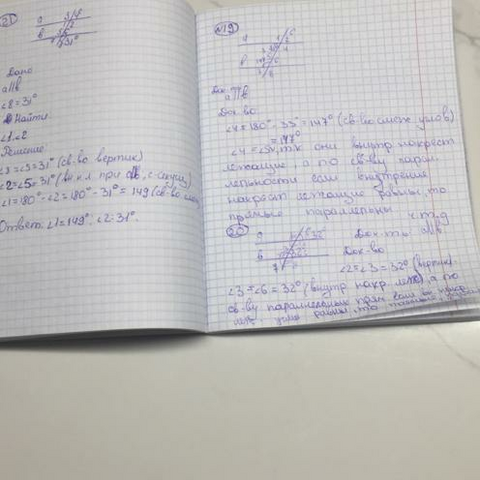 21)
a
b
Дано
a||b
∠8=31°
Найти
∠1,∠2
Решение
=31° (св-во вертик)
∠2=∠5=31° (вн н.л при a||b, с-секущ)
∠1=180°-∠2=180°-31°=149 (св-во
Ответ: ∠1=149°, ∠2=31°.
№19
a
b
Док a||b
Док-во
∠4=180°-33°=147° (св-во смеж углов)
=147°
т.к они внутр накрест
лежащие, а по св-ву парал
лельности если внутренние
накрест лежащие равны то
прямые параллельны ч.т.д
20
a
b
Док-ть a||b
Док-во
∠2=∠3=32° (вертик)
∠3=∠6=32° (внутр накр. леж), а по
св-ву параллельных прям если
углы равны то